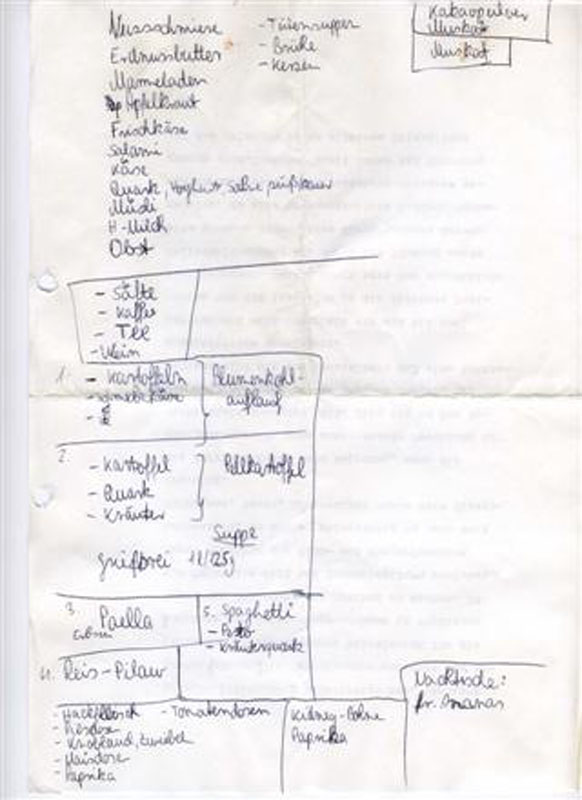 Nussschmiere
Erdnussbutter
Marmeladen
Apfelkraut
Frischkäse
Salami
Käse
Quark, Joghurt Sahne süß/sauer
Müsli
H-Milch
Obst
- Tütensuppen
- Brühe
- Kerzen
Kakaopulver
Muskat
Muskat
- Säfte
- Kaffee
- TEE
- Wein
1. - Kartoffeln
- Schmelzkäse
Blumenkohl-
auflauf
2.
- Kartoffel
- Quark
- Kräuter
Pellkartoffel
Suppe
Grießbrei 1l/125g
3. Paella
Erbsen
5. Spaghetti
- Pesto
- Kräuterquark
4. Reis-Pilaw
- Hackfleisch
- Knoblauch, Zwiebel
- Maisdose
- Paprika
- Tomatendosen
Kidney-Bohne
Paprika
Nachtische:
fr. Ananas